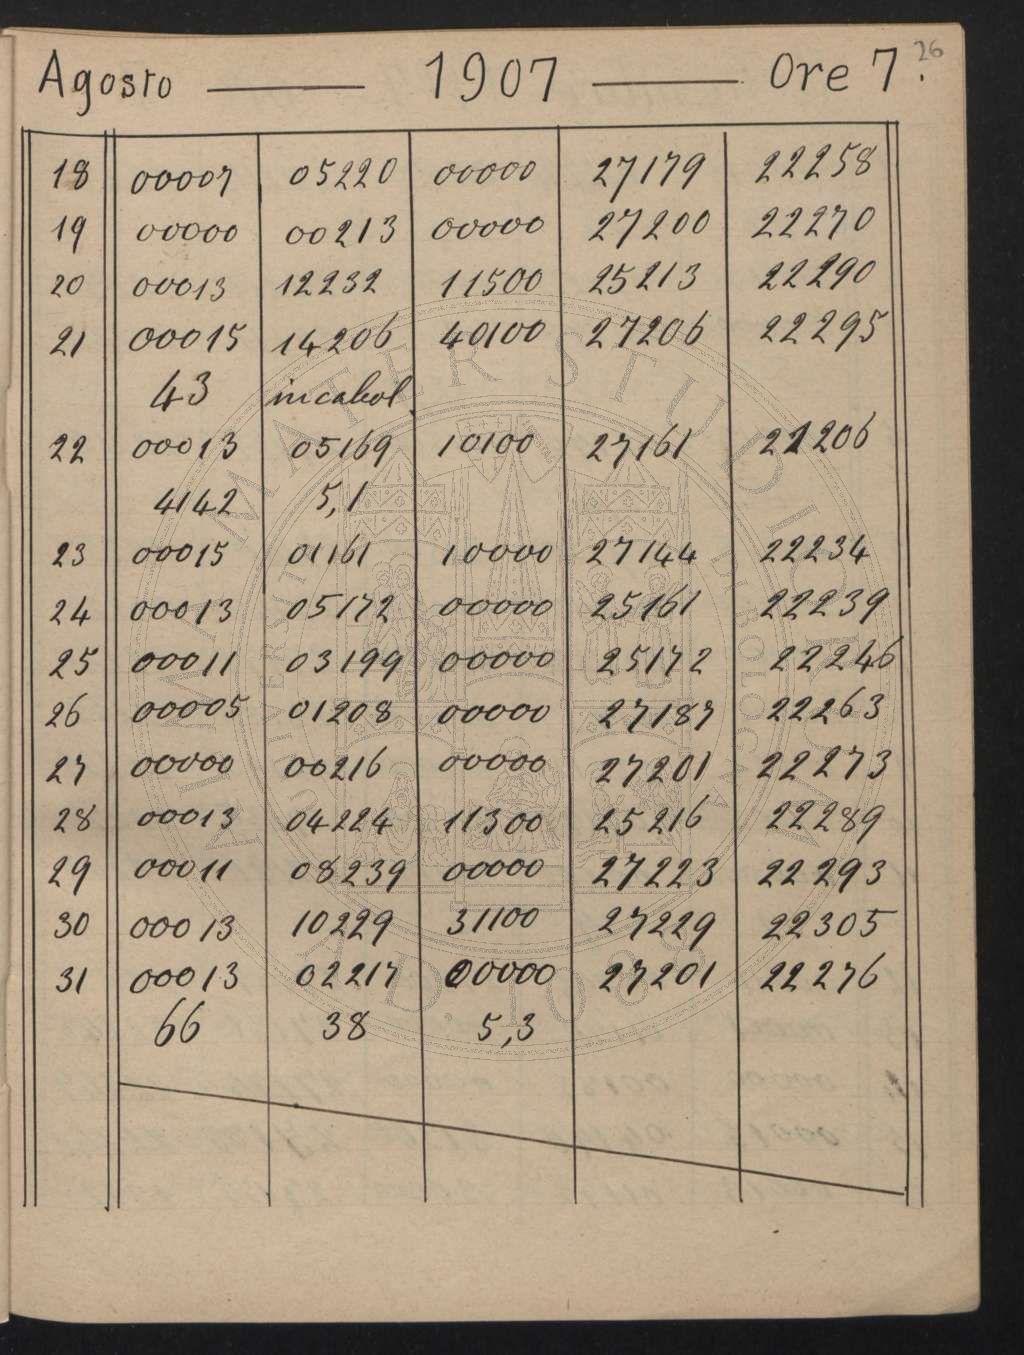 26
Agosto — 1907 — Ore 7.
18 00007 05220 00000 27179 22258
19 00000 00213 00000 27200 22270
20 00013 12232 11500 25213 22290
21 00015 14206 40100 27206 22295
43 incabol.
22 00013 05169 10100 27161 22206
4142 5,1
23 00015 01161 10000 27144 22234
24 00013 05172 00000 25161 22239
25 00011 03199 00000 25172 22246
26 00005 01208 00000 27187 22263
27 00000 00216 00000 27201 22273
28 00013 04224 11300 25216 22289
29 00011 08239 00000 27223 22293
30 00013 10229 31100 27229 22305
31 00013 02217 00000 27201 22276
66 38 5,3
ALMA MATER STUDIORUM
A.D. 1088